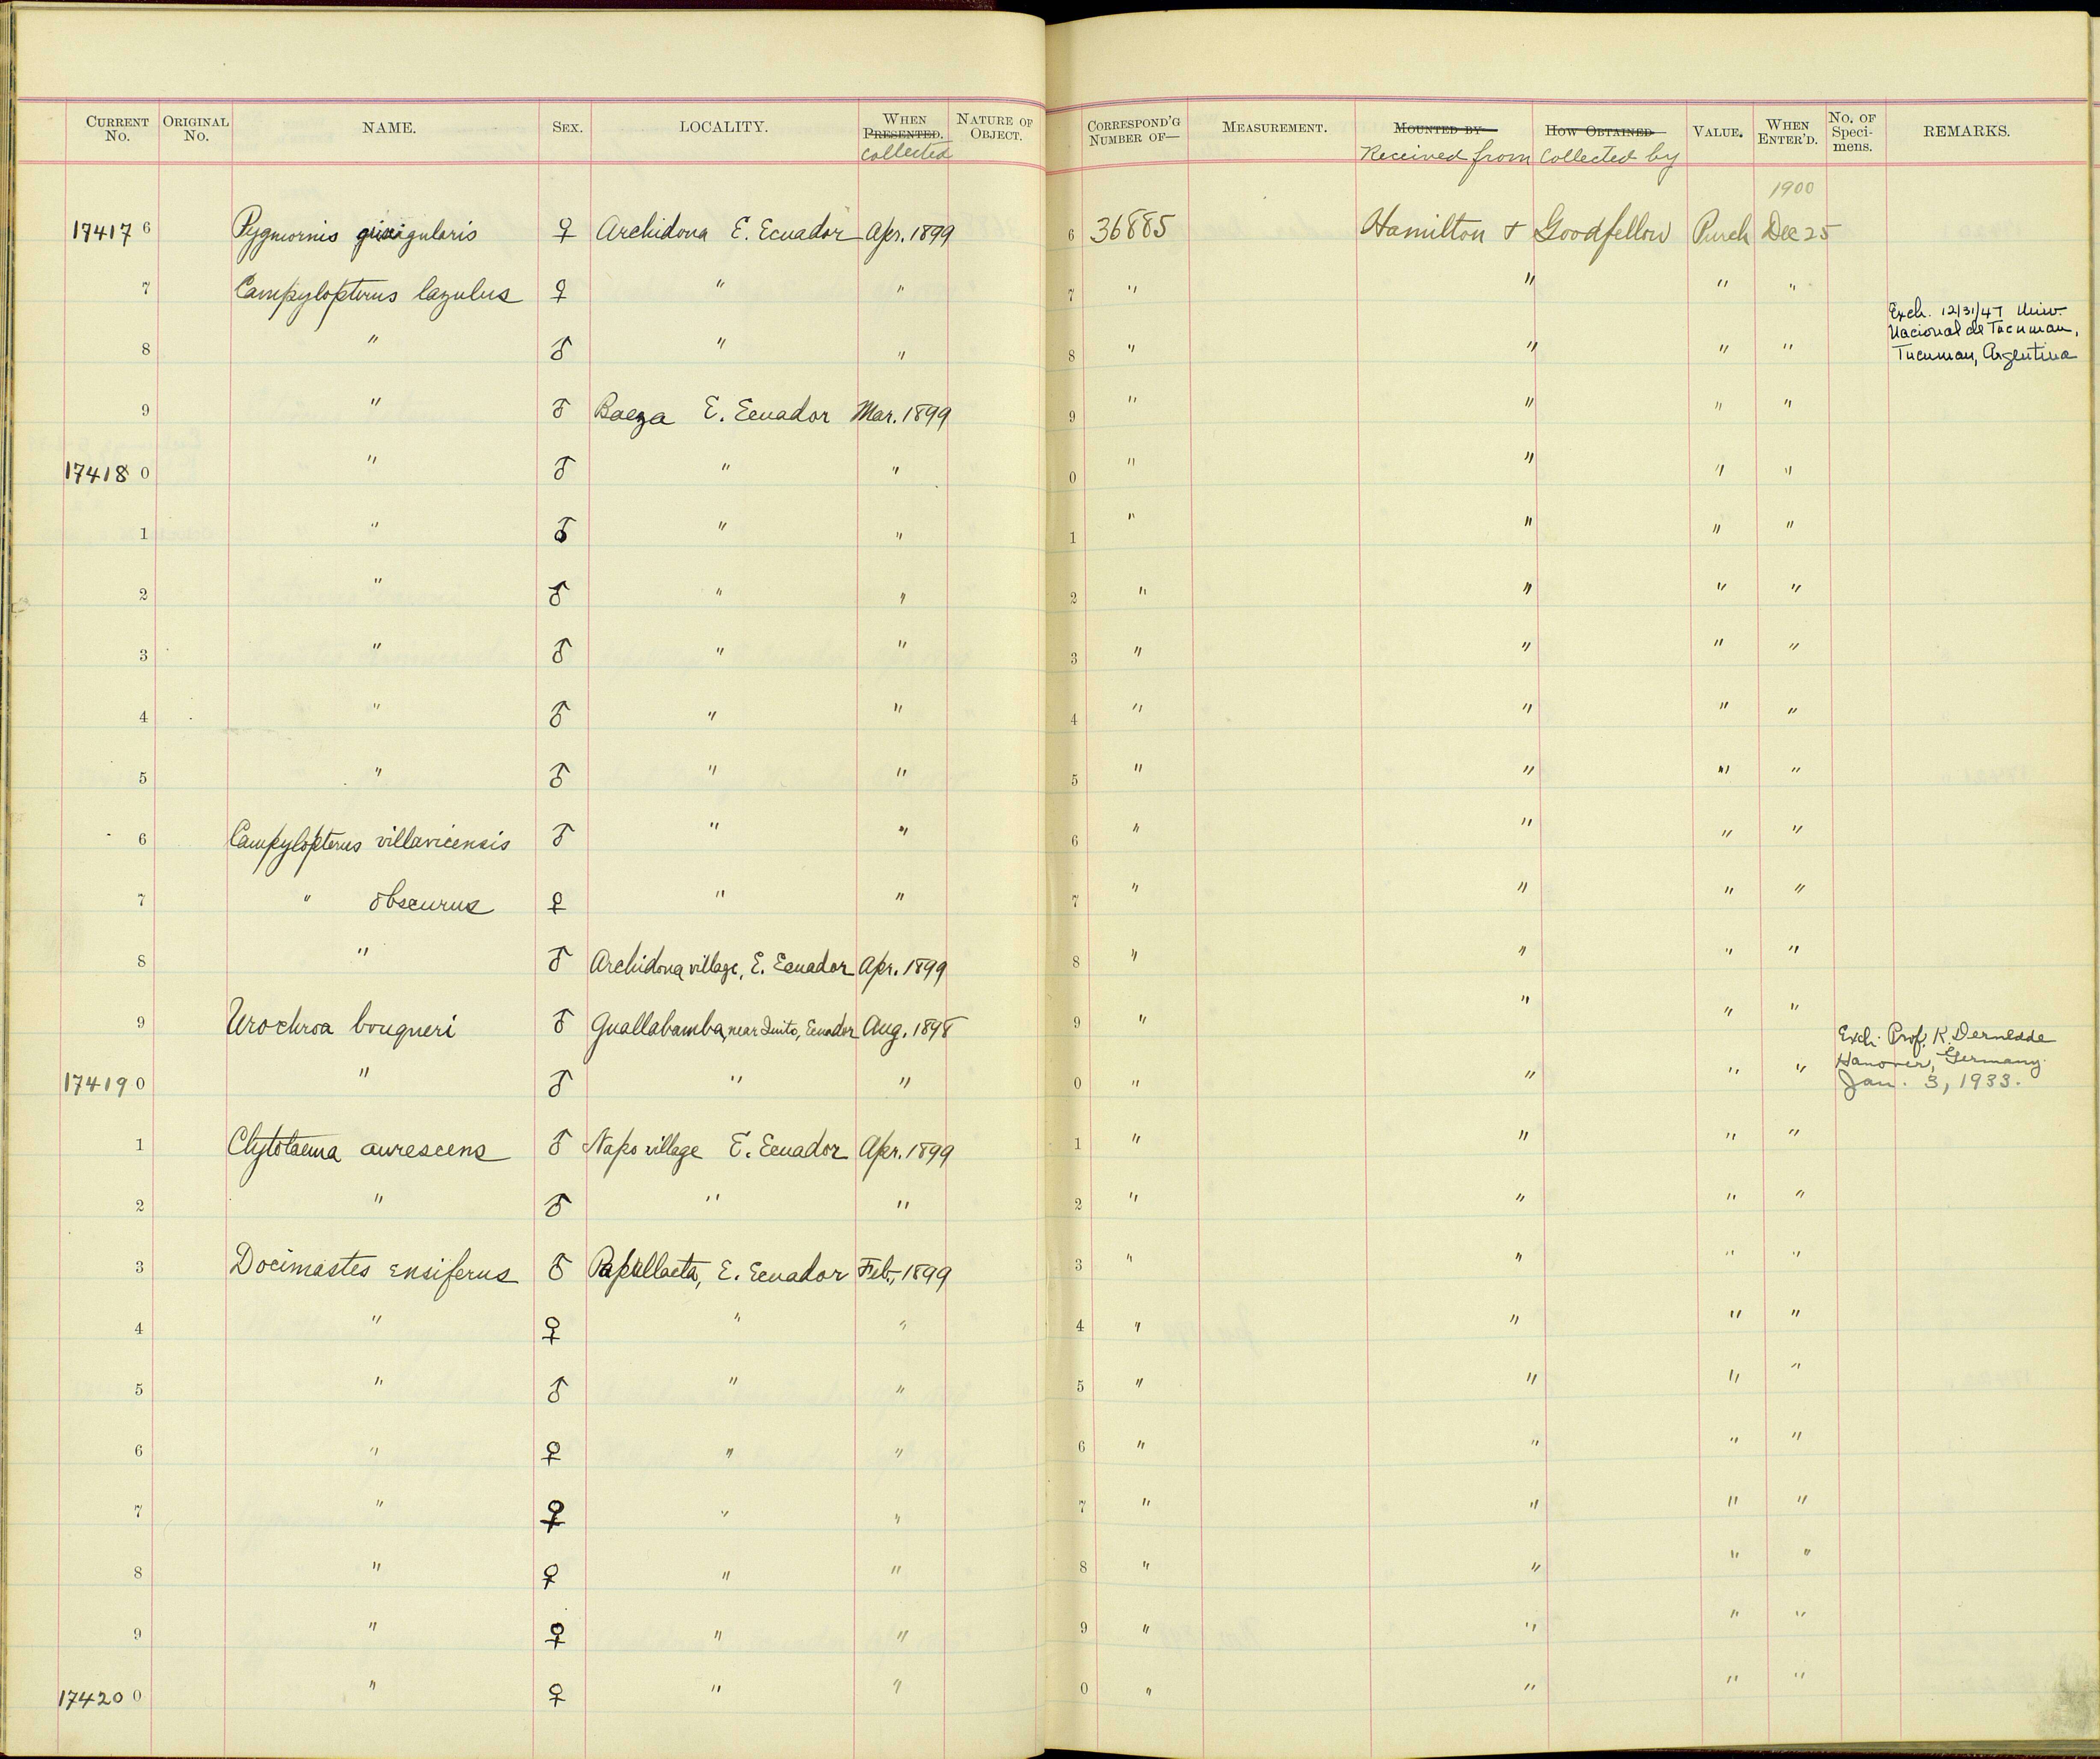 CURRENT No. ORIGINAL No. NAME. SEX. LOCALITY. WHEN PRESENTED. collected NATURE OF OBJECT. CORRESPOND'G NUMBER OF— MEASUREMENT. MOUNTED BY Received from HOW OBTAINED Collected by VALUE. WHEN ENTER'D. No. OF Specimens. REMARKS.
1900
17417 6 Pygmornis griseigularis ♀ Archidona E. Ecuador Apr. 1899 6 36885 Hamilton & Goodfellow Purch Dec 25
7 Campylopterus lazulus ♀ " " 7 " " " "
8 " ♂ " " 8 " " " " Exch. 12/31/47 Univ. Nacional de Tucuman, Tucuman, Argentina
9 " ♂ Baeza E. Ecuador Mar. 1899 9 " " " "
17418 0 " ♂ " " 0 " " " "
1 " ♂ " " 1 " " " "
2 " ♂ " " 2 " " " "
3 " ♂ " " 3 " " " "
4 " ♂ " " 4 " " " "
5 " ♂ " " 5 " " " "
6 Campylopterus villavicensis ♂ " " 6 " " " "
7 " obscurus ♀ " " 7 " " " "
8 " ♂ Archidona village, E. Ecuador Apr. 1899 8 " " " "
9 Urochroa bougueri ♂ Guallabamba, near Quito, Ecuador Aug. 1898 9 " " " "
17419 0 " ♂ " " 0 " " " " Exch. Prof. K. Dernedde Hanover, Germany. Jan. 3, 1933.
1 Clytolaema aurescens ♂ Napo village E. Ecuador Apr. 1899 1 " " " "
2 " ♂ " " 2 " " " "
3 Docimastes ensiferus ♂ Papallacta, E. Ecuador Feb, 1899 3 " " " "
4 " ♀ " " 4 " " " "
5 " ♂ " " 5 " " " "
6 " ♀ " " 6 " " " "
7 " ♀ " " 7 " " " "
8 " ♀ " " 8 " " " "
9 " ♀ " " 9 " " " "
17420 0 " ♀ " " 0 " " " "